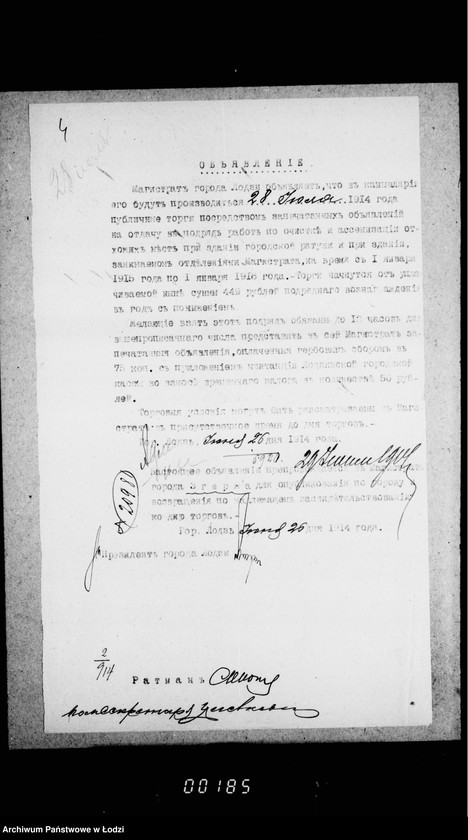 4
28 июля
ОБЪЯВЛЕНІЕ.
Магистратъ города Лодзи объявляетъ, что въ канцеляріи
его будутъ производиться 28 Іюля 1914 года
публичные торги посредствомъ запечатанныхъ объявленій
на отдачу въ подрядъ работъ по очисткѣ и ассенизаціи от-
хожихъ мѣстъ при зданіи городской ратуши и при зданіи,
занимаемомъ отдѣленіями Магистрата, на время съ 1 января
1915 года по 1 января 1918 года. Торги начнутся отъ упла
чиваемой нынѣ суммы 449 рублей подряднаго вознагражденія
въ годъ съ пониженіемъ.
Желающіе взять этотъ подрядъ обязаны до 12 часовъ дня
вышеприписаннаго числа представить въ сей Магистратъ за-
печатанныя объявленія, оплаченныя гербовымъ сборомъ въ
75 коп. съ приложеніемъ квитанціи Лодзинской городской
кассы во взносѣ временнаго залога въ количествѣ 50 руб-
лей.
Торговыя условія могутъ быть разсматриваемы въ Маги-
стратѣ въ присутственное время до дня торговъ.-
Лодзь, Іюня 26 дня 1914 года.
Настоящее объявленіе въ Магистратъ
города Згержа для опубликованія по сроку
возвращенія по надлежащемъ засвидѣтельствованіи
ко дню торговъ.-
Гор. Лодзь Іюня 26 дня 1914 года.
№ 2098
Президентъ города Лодзи
2/914
Ратманъ
00185
Archiwum Państwowe w Łodzi